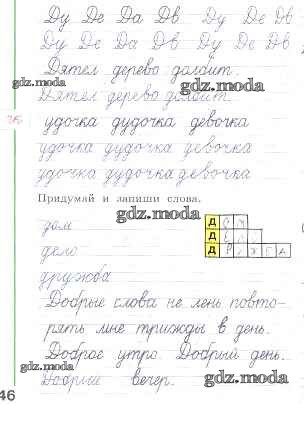 Ду Де Да Дв Ду Де Дв
Ду Де Да Дв Ду Де Дв
Дятел дерево долбит.
gdz.moda
gdz.moda
Дятел дерево долбит.
удочка дудочка девочка
удочка дудочка девочка
gdz.moda
удочка дудочка девочка
Придумай и запиши слова.
gdz.moda
дом
Д
дело
Д
дружба
Д Р У Ж Б А
Добрые слова не лень повто-
рять мне трижды в день.
Доброе утро. Добрый день.
gdz.moda
Добрый вечер.
gdz.moda
46